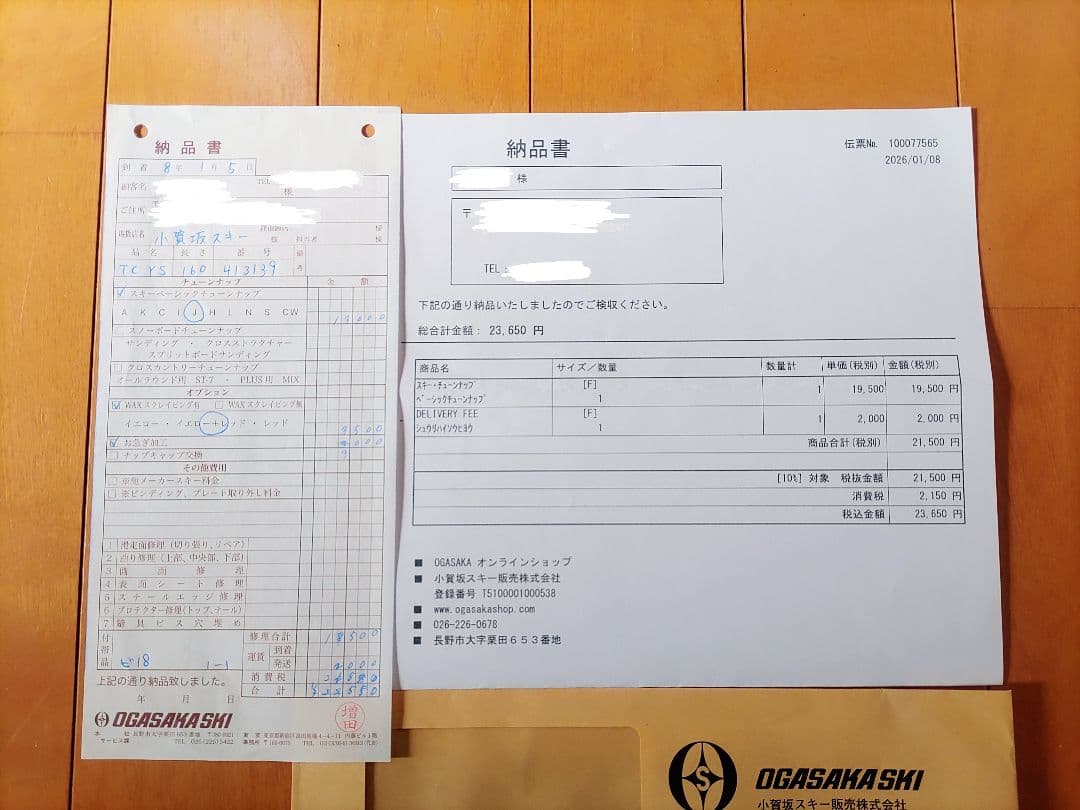 納品書
到着 8年 1月 5日
顧客名 TEL 様
ご住所
取扱店名 小賀坂スキー 様 担当者 様
品名 長さ 番号 備考
TC YS 160 413139
チューンナップ 金額
スキーベーシックチューンナップ
A K C I J H L N S CW
スノーボードチューンナップ
サンディング ・ クロスストラクチャー
スプリットボードサンディング
クロスカントリーチューンナップ
オールラウンド用 ST-7 ・ PLUS用 MIX
オプション
WAXスクレイピング有 WAXスクレイピング無
イエロー ・ イエロー+レッド ・ レッド
お急ぎ加工
チップキャップ交換
その他費用
※他メーカースキー料金
※ビンディング、プレート取り外し料金
1 滑走面修理(切り張り、リペア)
2 曲り修理(上部、中央部、下部)
3 側面修理
4 表面シート修理
5 スチールエッジ修理
6 プロテクター修理(トップ、テール)
7 締具ビス穴埋め
修理合計 18500
付帯品 ビ18 1-1
運賃 到着
発送 2000
消費税
合計
上記の通り納品致しました。
年 月 日
OGASAKA SKI
増田
本社 長野市大字栗田653番地 〒380-0921
サービス課 TEL 026(226)5422
納品書
伝票No. 100077565
2026/01/08
様
〒
TEL:
下記の通り納品いたしましたのでご検収ください。
総合計金額: 23,650 円
商品名 サイズ/数量 数量計 単価(税別) 金額(税別)
スキ-・チュ-ンナップ [F] 1 19,500 19,500 円
ベ-シックチュ-ンナップ 1
DELIVERY FEE [F] 1 2,000 2,000 円
シュウリハイソウヒヨウ 1
商品合計(税別) 21,500 円
[10%] 対象 税抜金額 21,500 円
消費税 2,150 円
税込金額 23,650 円
■ OGASAKA オンラインショップ
■ 小賀坂スキー販売株式会社
登録番号 T5100001000538
■ www.ogasakashop.com
■ 026-226-0678
■ 長野市大字栗田653番地
OGASAKA SKI
小賀坂スキー販売株式会社